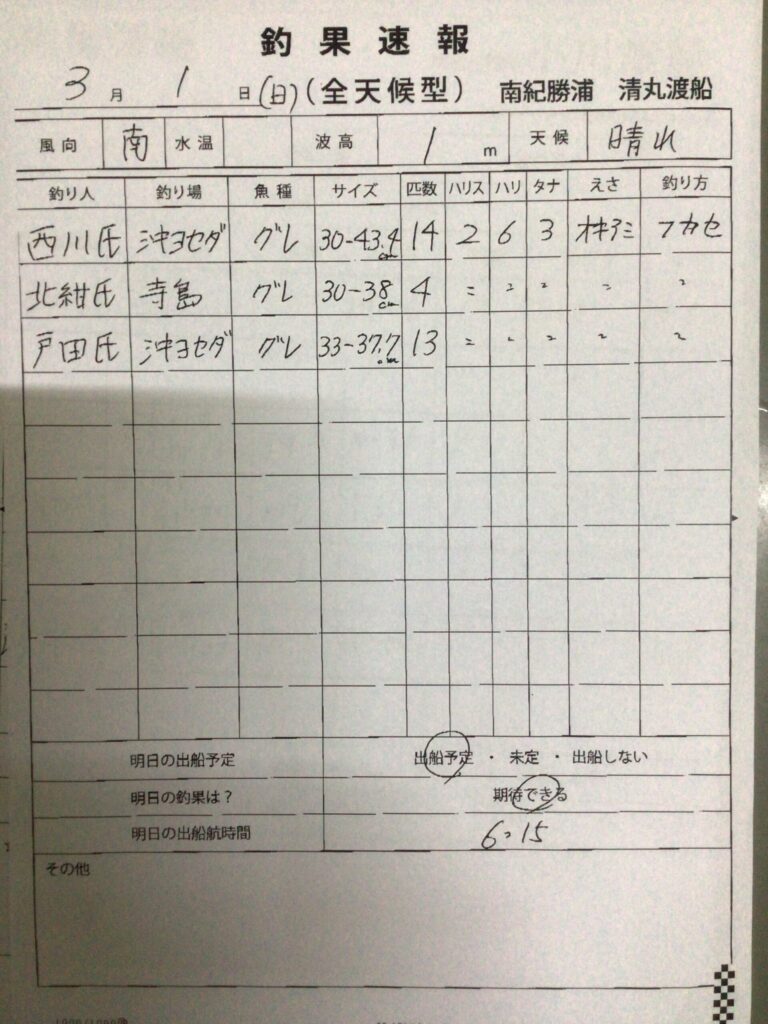 釣果速報
3月1日(日)(全天候型) 南紀勝浦 清丸渡船
風向 南 水温 波高 1 m 天候 晴れ
釣り人 釣り場 魚種 サイズ 匹数 ハリス ハリ タナ えさ 釣り方
西川氏 沖ヨセダ グレ 30-43.4cm 14 2 6 3 オキアミ フカセ
北紺氏 寺島 グレ 30-38cm 4 〃 〃 〃 〃 〃
戸田氏 沖ヨセダ グレ 33-37.7cm 13 〃 〃 〃 〃 〃
明日の出船予定 出船予定 ・ 未定 ・ 出船しない
明日の釣果は? 期待できる
明日の出船航時間 6:15
その他